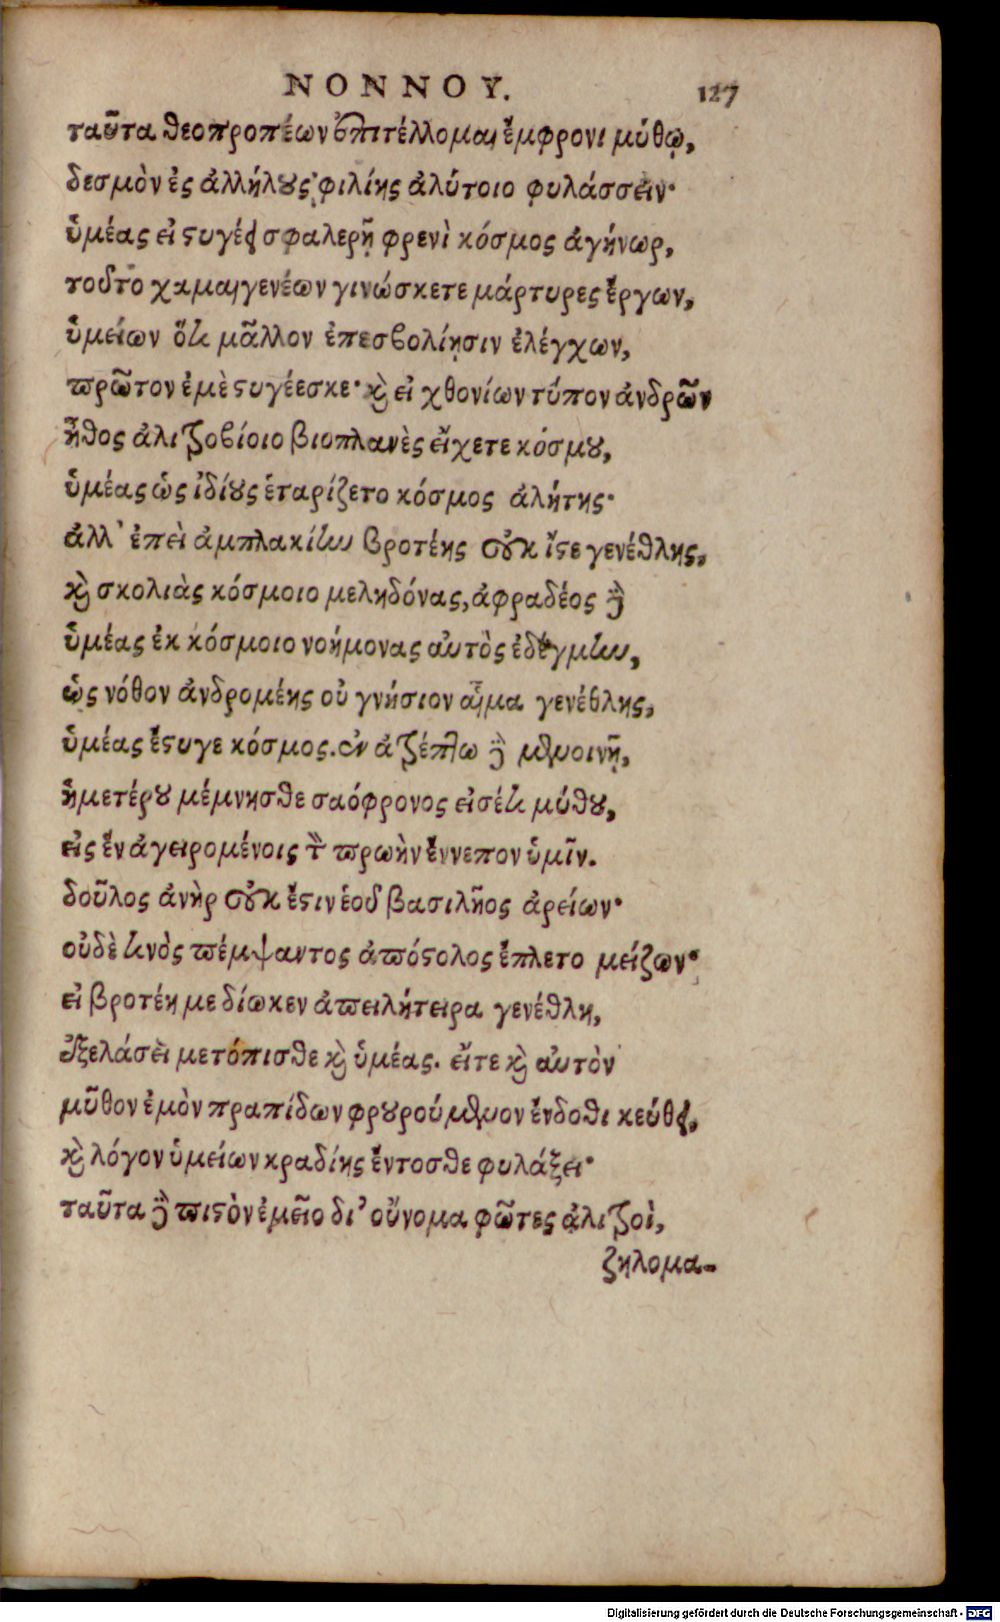 ΝΟΝΝΟΥ. 127
ταῦτα θεοπροπέων ἐπιτέλλομαι ἔμφρονι μύθῳ,
δεσμὸν ἐς ἀλλήλους φιλίης ἀλύτοιο φυλάσσειν·
ὑμέας εἰ στυγέει σφαλερῇ φρενὶ κόσμος ἀγήνωρ,
τοῦτο χαμαιγενέων γινώσκετε μάρτυρες ἔργων,
ὑμείων ὅτι μᾶλλον ἐπεσβολίῃσιν ἐλέγχων,
πρῶτον ἐμὲ στυγέεσκε· καὶ εἰ χθονίων τύπον ἀνδρῶν
ἦθος ἀλιτροβίοιο βιοπλανὲς εἴχετε κόσμου,
ὑμέας ὡς ἰδίους ἑταρίζετο κόσμος ἀλήτης·
ἀλλ' ἐπεὶ ἀμπλακίην βροτέης οὐκ ἴστε γενέθλης,
καὶ σκολιὰς κόσμοιο μεληδόνας, ἀφραδέος γὰρ
ὑμέας ἐκ κόσμοιο νοήμονας αὐτὸς ἐδέγμην,
ὡς νόθον ἀνδρομέης οὐ γνήσιον αἷμα γενέθλης,
ὑμέας ἔστυγε κόσμος. ἐν ἀτρέπτῳ γὰρ μενοινῇ,
ἡμετέρου μέμνησθε σαόφρονος εἰσέτι μύθου,
εἰς ἓν ἀγειρομένοις τὸν πρωὴν ἔννεπον ὑμῖν.
δοῦλος ἀνὴρ οὐκ ἔστιν ἑοῦ βασιλῆος ἀρείων·
οὐδὲ τινὸς πέμψαντος ἀπόστολος ἔπλετο μείζων·
εἰ βροτέη με δίωκεν ἀπειλήτειρα γενέθλη,
ἐξελάσει μετόπισθε καὶ ὑμέας. εἴτε καὶ αὐτὸν
μῦθον ἐμὸν πραπίδων φρουρούμενον ἔνδοθι κεύθει,
καὶ λόγον ὑμείων κραδίης ἔντοσθε φυλάξει·
ταῦτα γὰρ πιστὸν ἐμεῖο δι' οὔνομα φῶτες ἀλιτροὶ,
ζηλομα-
Digitalisierung gefördert durch die Deutsche Forschungsgemeinschaft - DFG